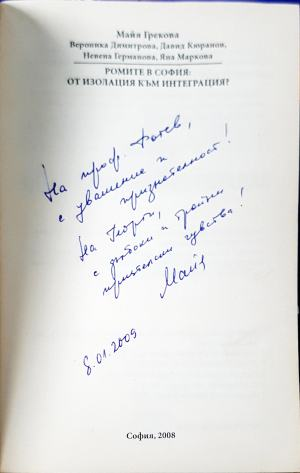 Майя Грекова
Вероника Димитрова, Давид Кюранов,
Невена Германова, Яна Маркова
РОМИТЕ В СОФИЯ:
ОТ ИЗОЛАЦИЯ КЪМ ИНТЕГРАЦИЯ?
На проф. Фотев,
с уважение и
признателност!
На Георги,
с дълбоки и трайни
приятелски чувства!
Майя
8.01.2009
София, 2008